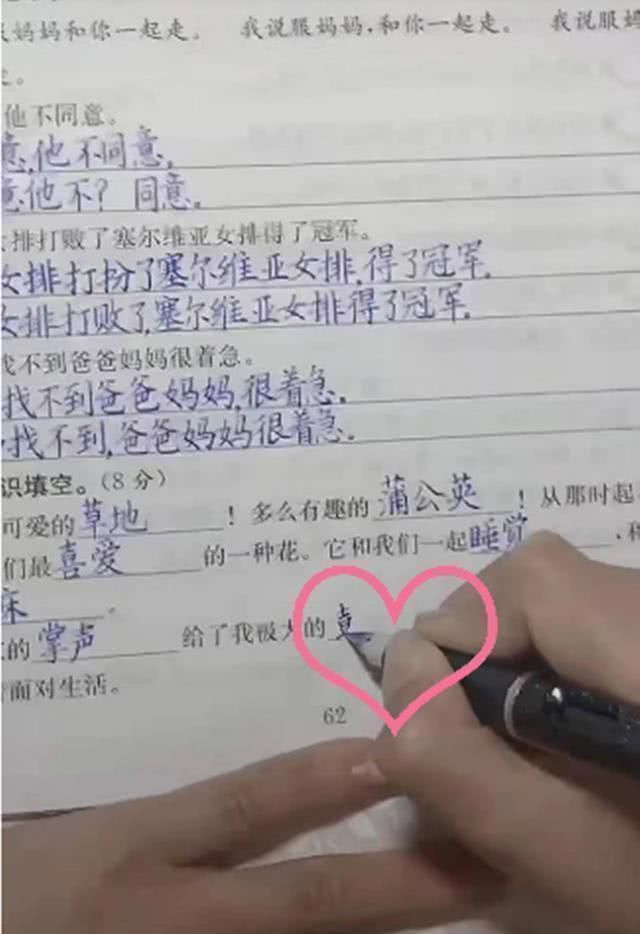 妈妈和你一起走。 我说服妈妈,和你一起走。 我说服妈
他不同意。
意,他不同意。
意他不?同意。
女排打败了塞尔维亚女排得了冠军。
女排打扮了塞尔维亚女排,得了冠军.
女排打败了,塞尔维亚女排得了冠军.
找不到爸爸妈妈很着急。
找不到爸爸妈妈,很着急。
找不到,爸爸妈妈很着急。
识填空。(8分)
可爱的草地！多么有趣的蒲公英！从那时起
们最喜爱的一种花。它和我们一起睡觉
床。
的掌声给了我极大的
面对生活。
62